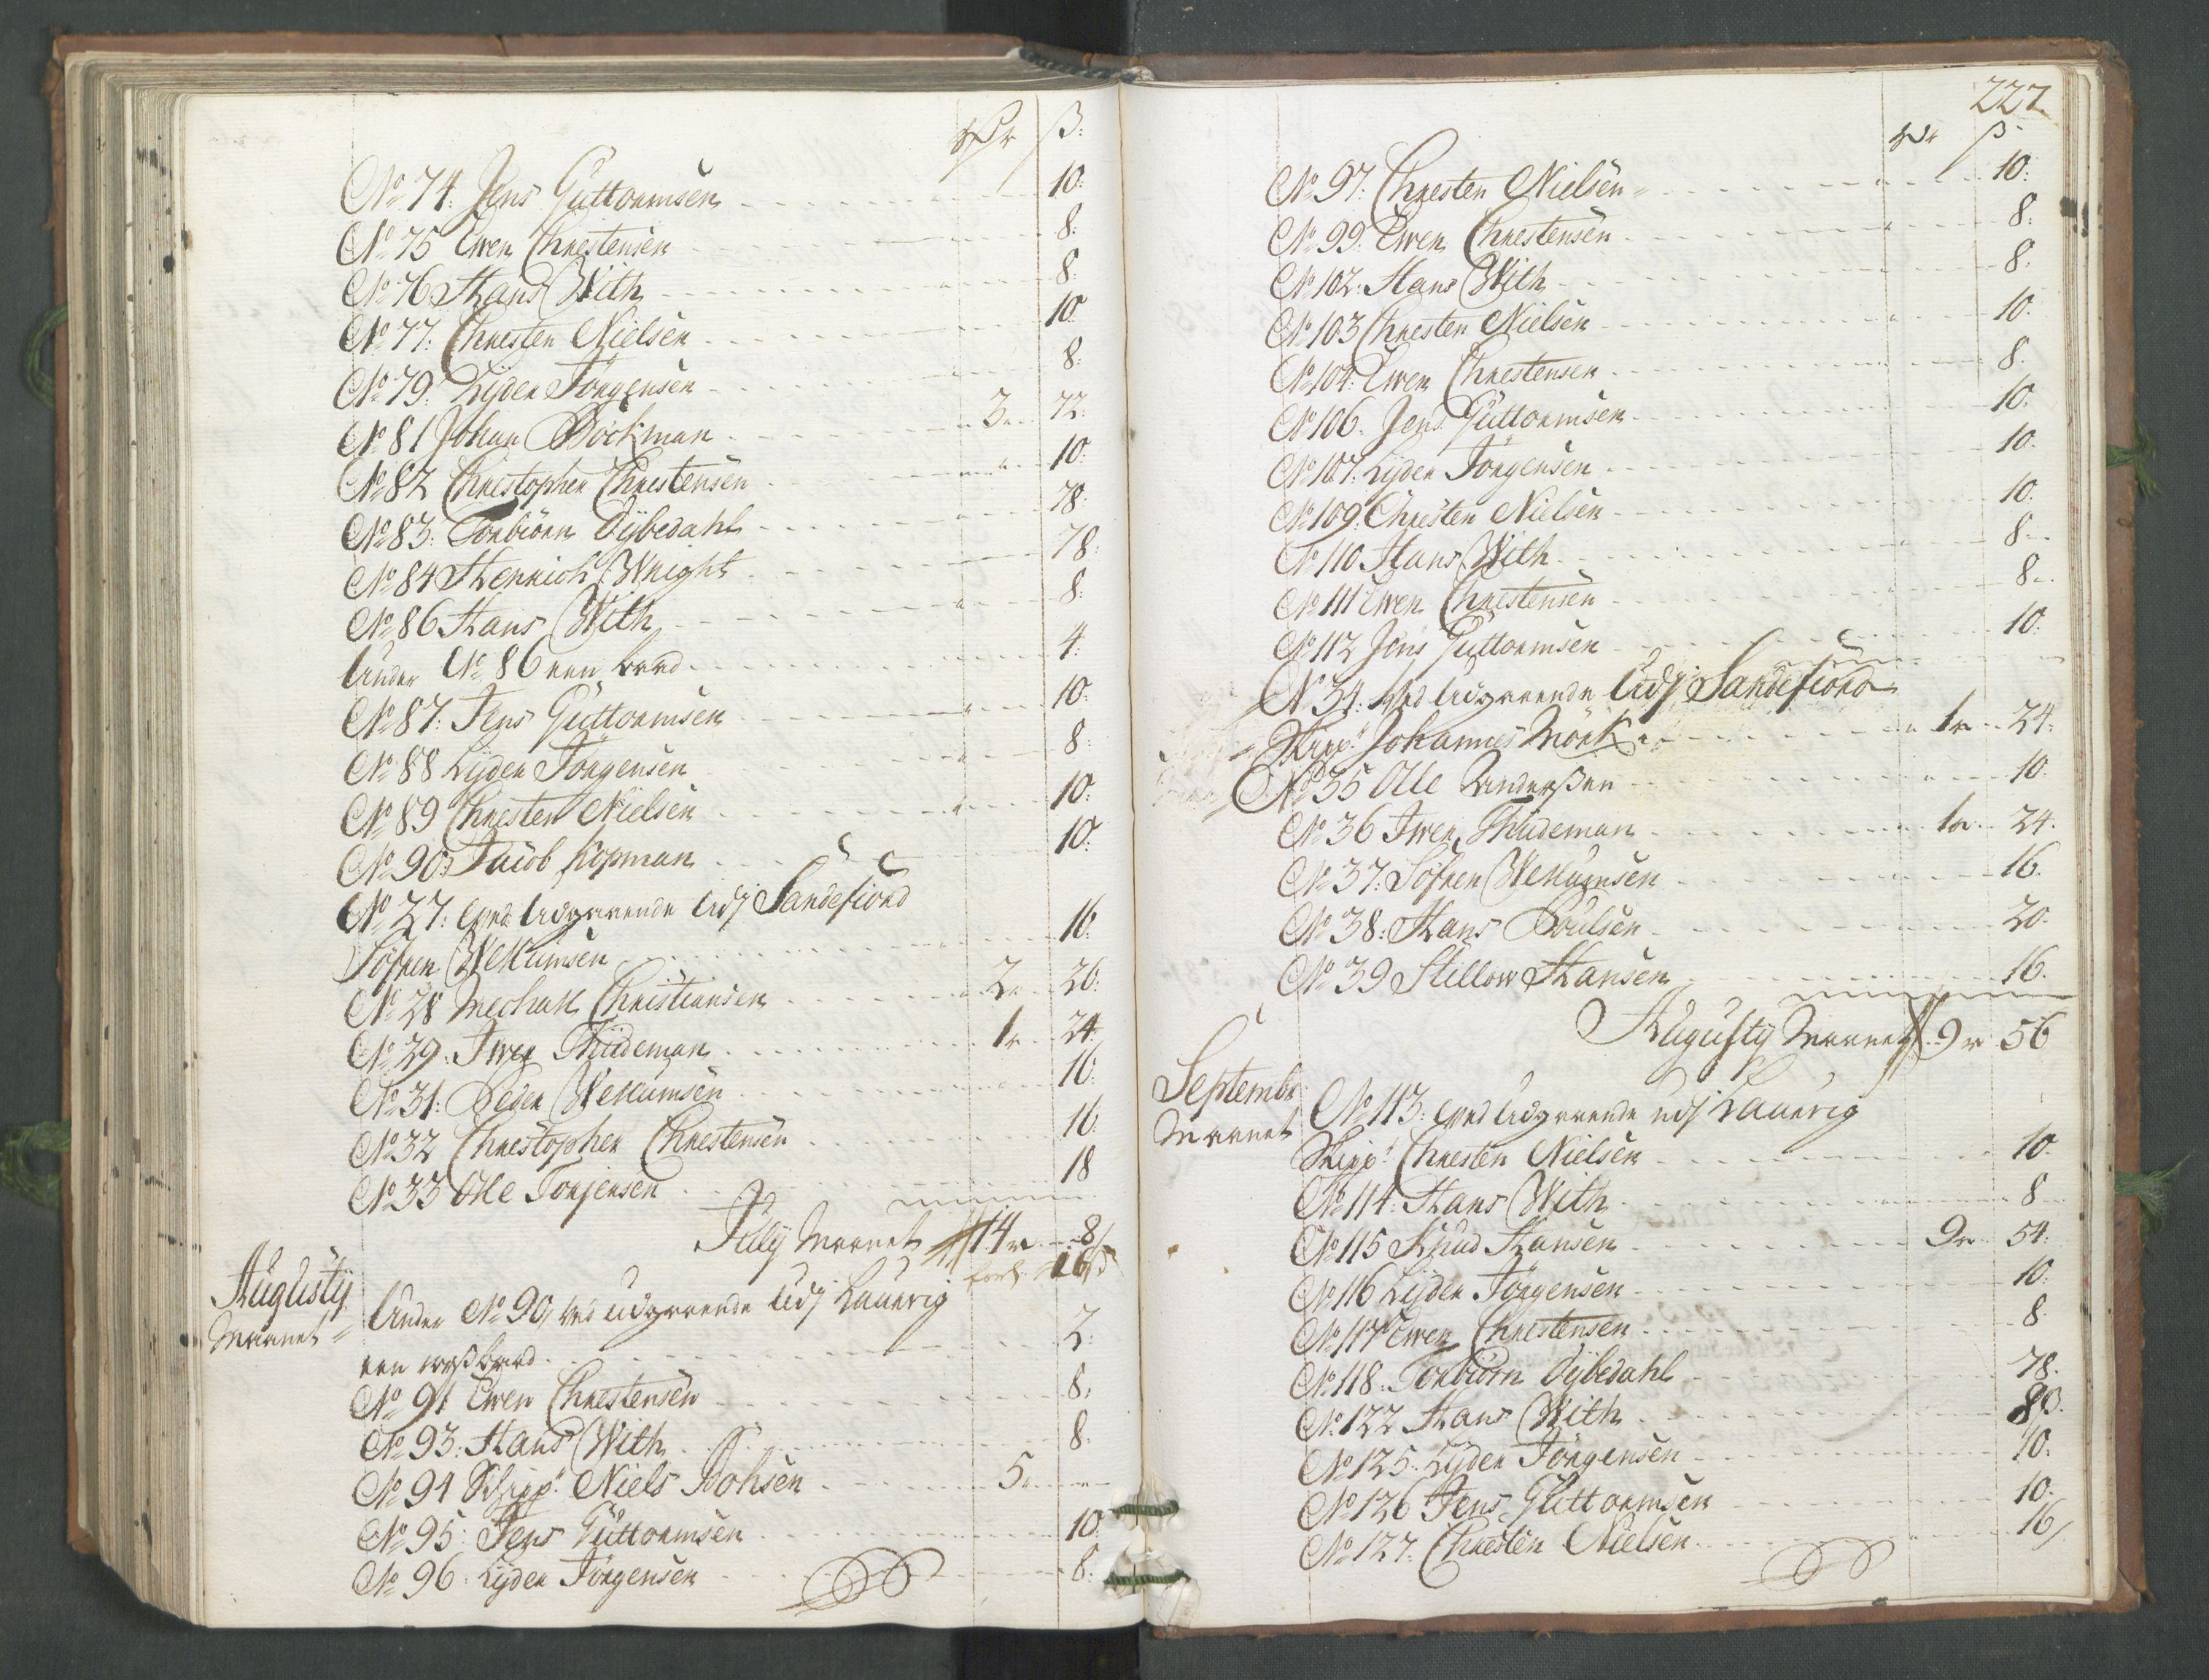 ß:
No 74. Jens Guttormsen 10:
No 75 Ewen Chrestensen 8:
No 76 Hans With 8:
No 77. Chresten Nielsen 10
No 79. Lyder Jörgensen 8:
No 81 Johan Böckman 3 72:
No 82 Christopher Chrestensen 10:
No 83: Torbiörn Dybedahl 78:
No 84 Henrich Wright 78:
No 86 Hans With 8:
Under No 86 een 4:
No 87: Jens Guttormsen 10:
No 88 Lyder Jörgensen 8:
No 89 Chresten Nielsen 10:
No 90: Jacob Kopman 10:
No 27: ved udgaaende udj Sandefiord
Söfren Wellumsen 16:
No 28 Mechall Christiansen 2 26:
No 29. Iwer Thudeman 1 24
No 31: Peder Wellumsen 16:
No 32 Christopher Chrestensen 16
No 33 Olle Torjensen 18
July Maanet 14 8/
Augusty
Maanet
Under No 90, ved udgaaende udj Lauerig
een 2:
No 91 Ewen Chrestensen 8:
No 93: Hans With 8:
No 94 Schipp: Niels Bohsen 5
No 95: Jens Guttormsen 10:
No 96. Lyder Jörgensen 8:
227
ß
No 97: Chresten Nielsen 10:
No 99. Ewen Chrestensen 8:
No 102. Hans With 8:
No 103 Chresten Nielsen 10:
No 104: Ewen Chrestensen 8:
No 106. Jens Guttormsen 10:
No 107: Lyder Jörgensen 10:
No 109: Chresten Nielsen 10:
No 110 Hans With 8
No 111 Ewen Chrestensen 8
No 112 Jens Guttormsen 10:
No 34. ved udgaaende udj Sandefiord
Skipp: Johannes Mörk 1 24:
No 35 Olle Anderßen 10:
No 36 Iwer Thudeman 1 24.
No 37: Söfren Wellumsen 16.
No 38: Hans Poulsen 20.
No 39 Stillow Hansen 16.
Augusty Maanet 9 56
Septembr
Maanet
No 113: ved udgaaende udj Lauerig
Skipp: Chresten Nielsen 10.
No 114: Hans With 8
No 115 Knud Hansen 9 54:
No 116 Lyder Jörgensen 10:
No 117 Ewen Chrestensen 8
No 118: Torbiörn Dybedahl 78.
No 122 Hans With 8ß.
No 125: Lyder Jörgensen 10:
No 126 Jens Guttormsen 10:
No 127: Chresten Nielsen 16/